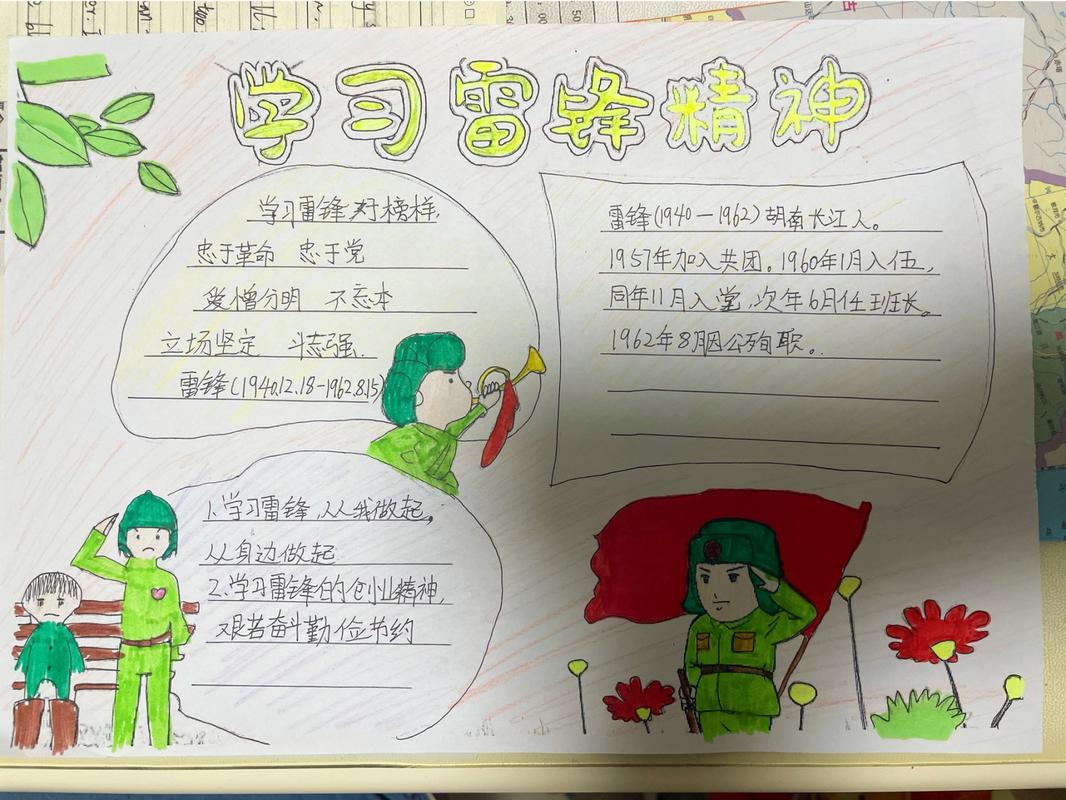 学习雷锋精神
学习雷锋好榜样,
忠于革命 忠于党
爱憎分明 不忘本
立场坚定 斗志强.
雷锋(1940.12.18-1962.8.15)
雷锋(1940—1962)胡南长江人。
1957年加入共团。1960年1月入伍,
同年11月入党,次年6月任班长。
1962年8月因公殉职。
1.学习雷锋,从我做起。
从身边做起
2.学习雷锋的创业精神,
艰苦奋斗勤俭节约